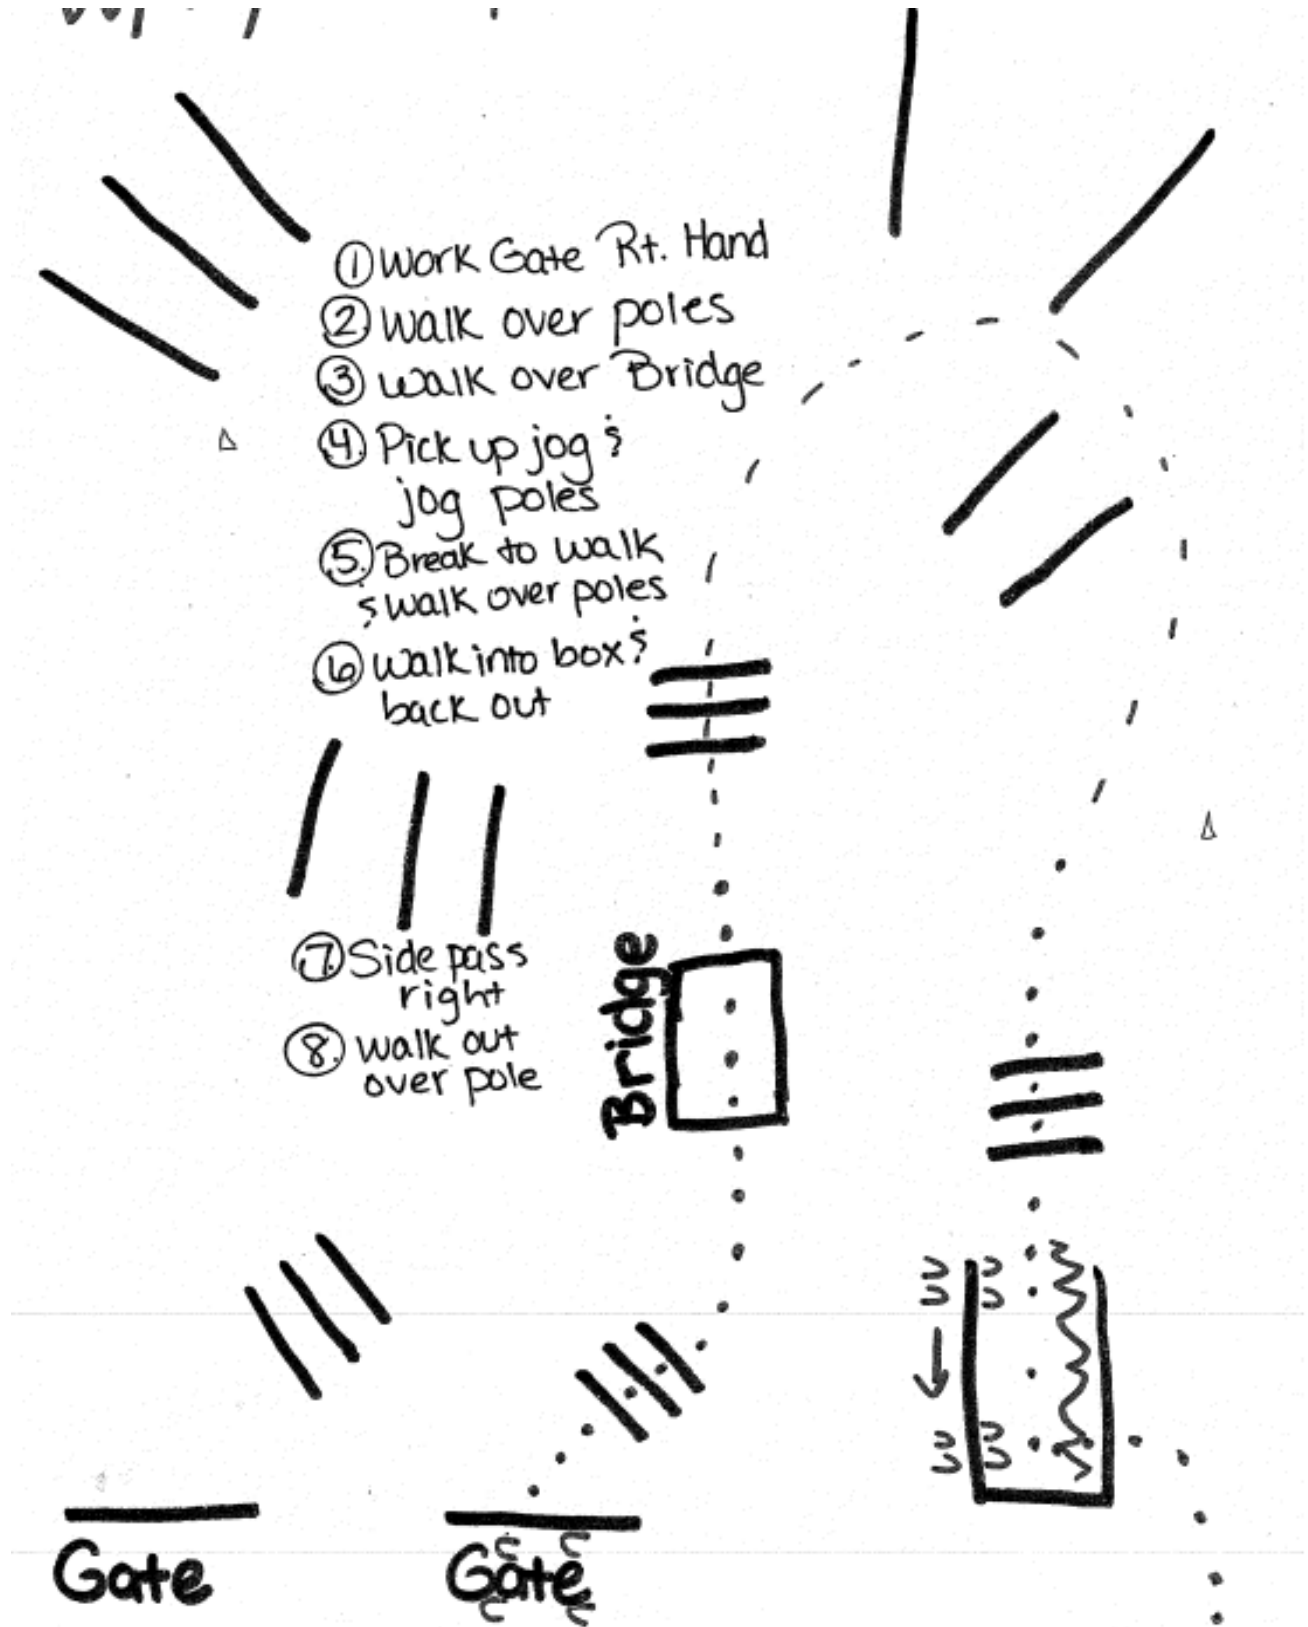 ① Work Gate Rt. Hand
② Walk over poles
③ Walk over Bridge
④ Pick up jog &
jog poles
⑤ Break to walk
& walk over poles
⑥ Walk into box &
back out
⑦ Side pass
right
⑧ Walk out
over pole
Bridge
Gate
Gate